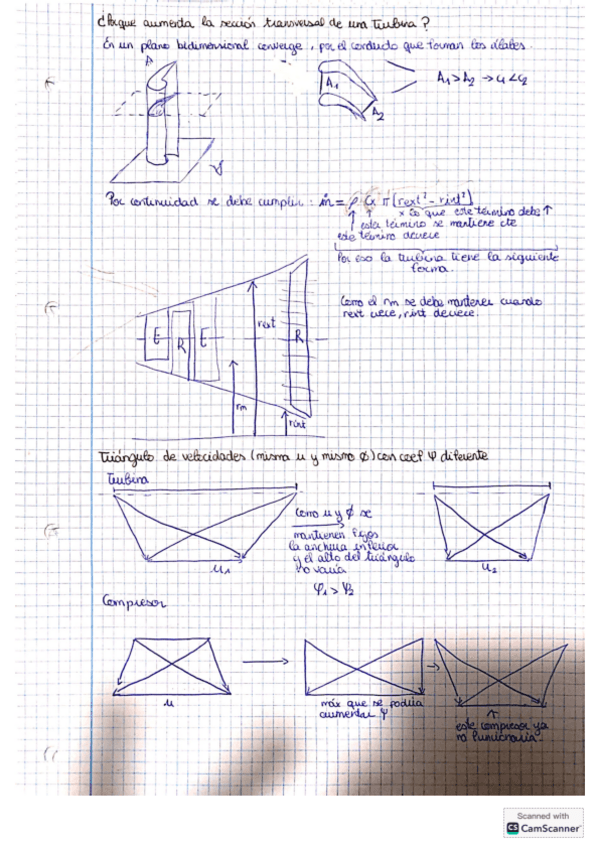 ¿Porque aumenta la sección transversal de una turbina?
En un plano bidimensional converge, por el conducto que forman los álabes.
A
A1
A2
A1 > A2 → c1 < c2
Por continuidad se debe cumplir: ṁ = ρ · Cx π [rext² - rint²]
× lo que este término debe ↑
este término se mantiene cte
este término decrece
Por eso la turbina tiene la siguiente
forma.
Como el rm se debe mantener cuando
rext crece, rint decrece.
E
R
E
rext
R
rm
rint
Triángulo de velocidades (misma u y mismo ϕ) con coef ψ diferente
Turbina
Como u y ϕ se
mantienen fijos
la anchura inferior
y el alto del triángulo
no varía
ψ1 > ψ2
u1
u2
Compresor
u
máx que se podría
aumentar ψ
este compresor ya
no funcionaría.
Scanned with
CS CamScanner